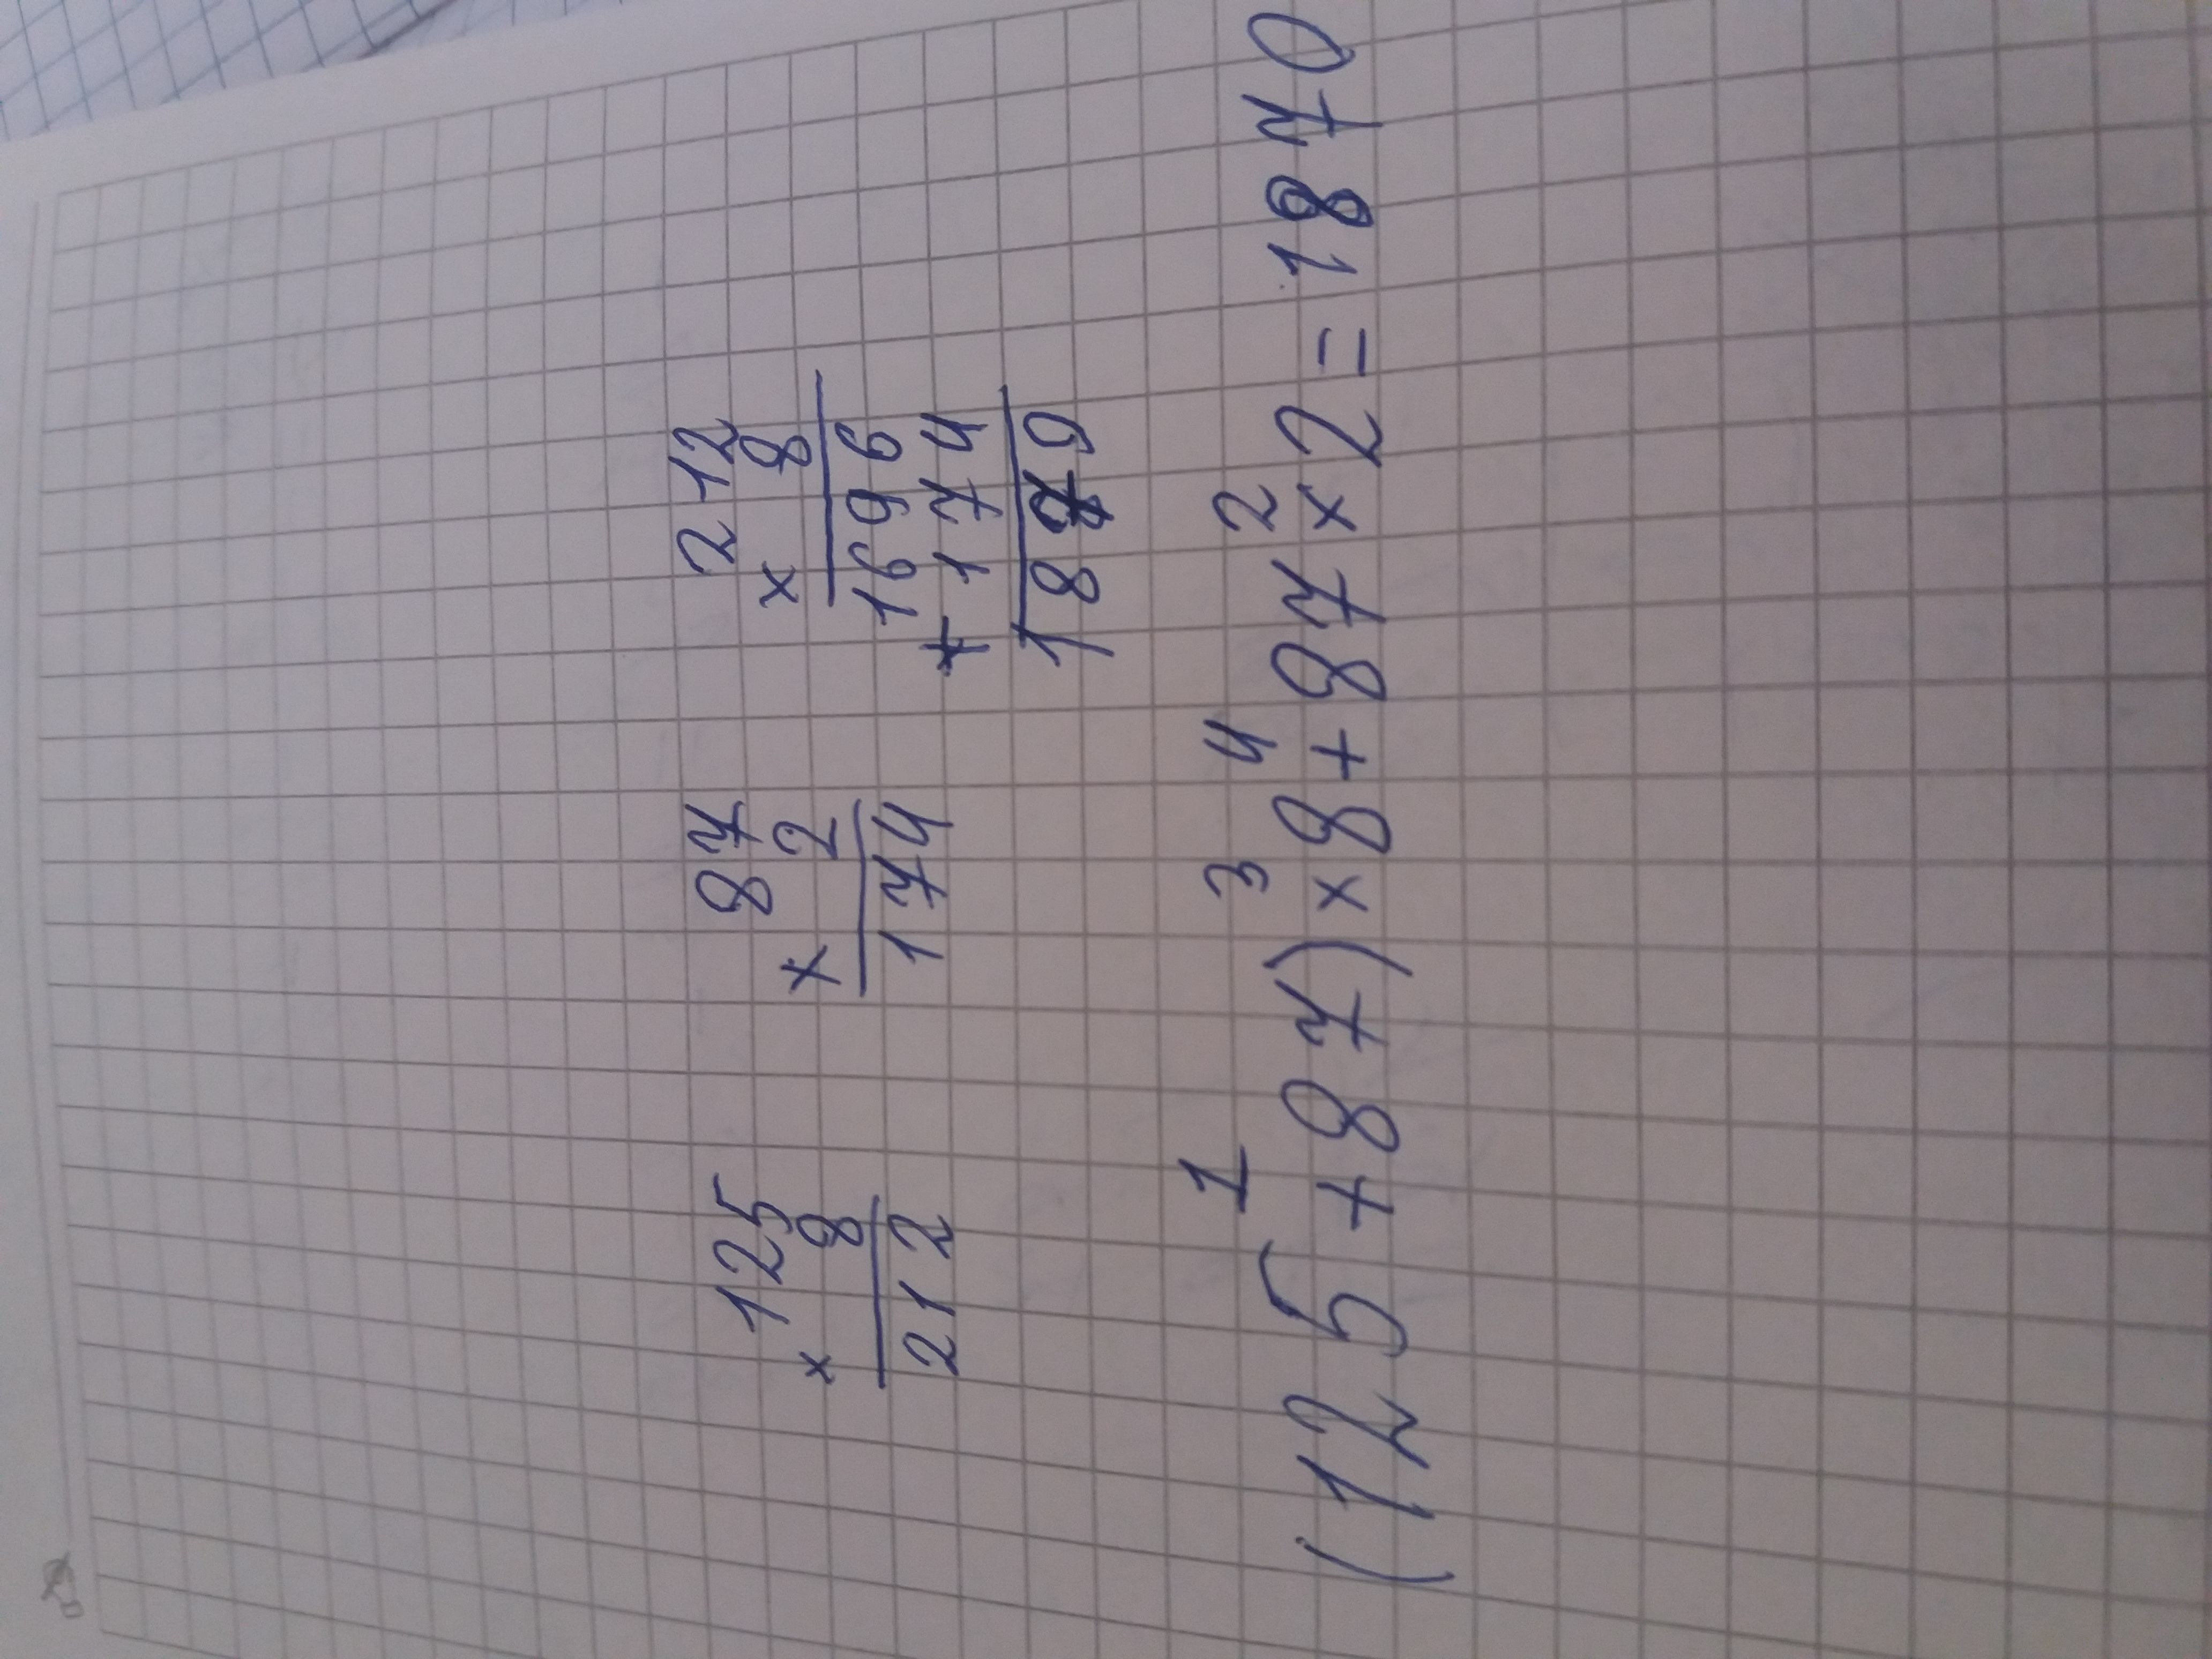 125
× 8
212
87
× 2
174
212
× 8
1696
+ 174
1870
1 3 4 2
(125+87)×8+87×2=1870